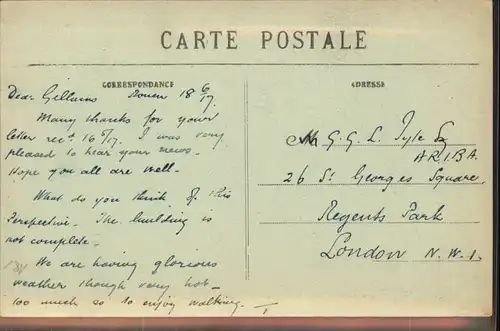 CARTE POSTALE
CORRESPONDANCE
Dear Rouen 18 6/17.
Many thanks for your
letter recd. 16/6/17. I was very
pleased to hear your news –
Hope you all are well –
What do you think of this
Perspective – The building is
not complete –
We are having glorious
weather though very hot –
too much so to enjoy walking. –
ADRESSE
G. G. L. Tyle Esq
A.R.I.B.A.
26 St Georges Square
Regents Park
London N.W.1.